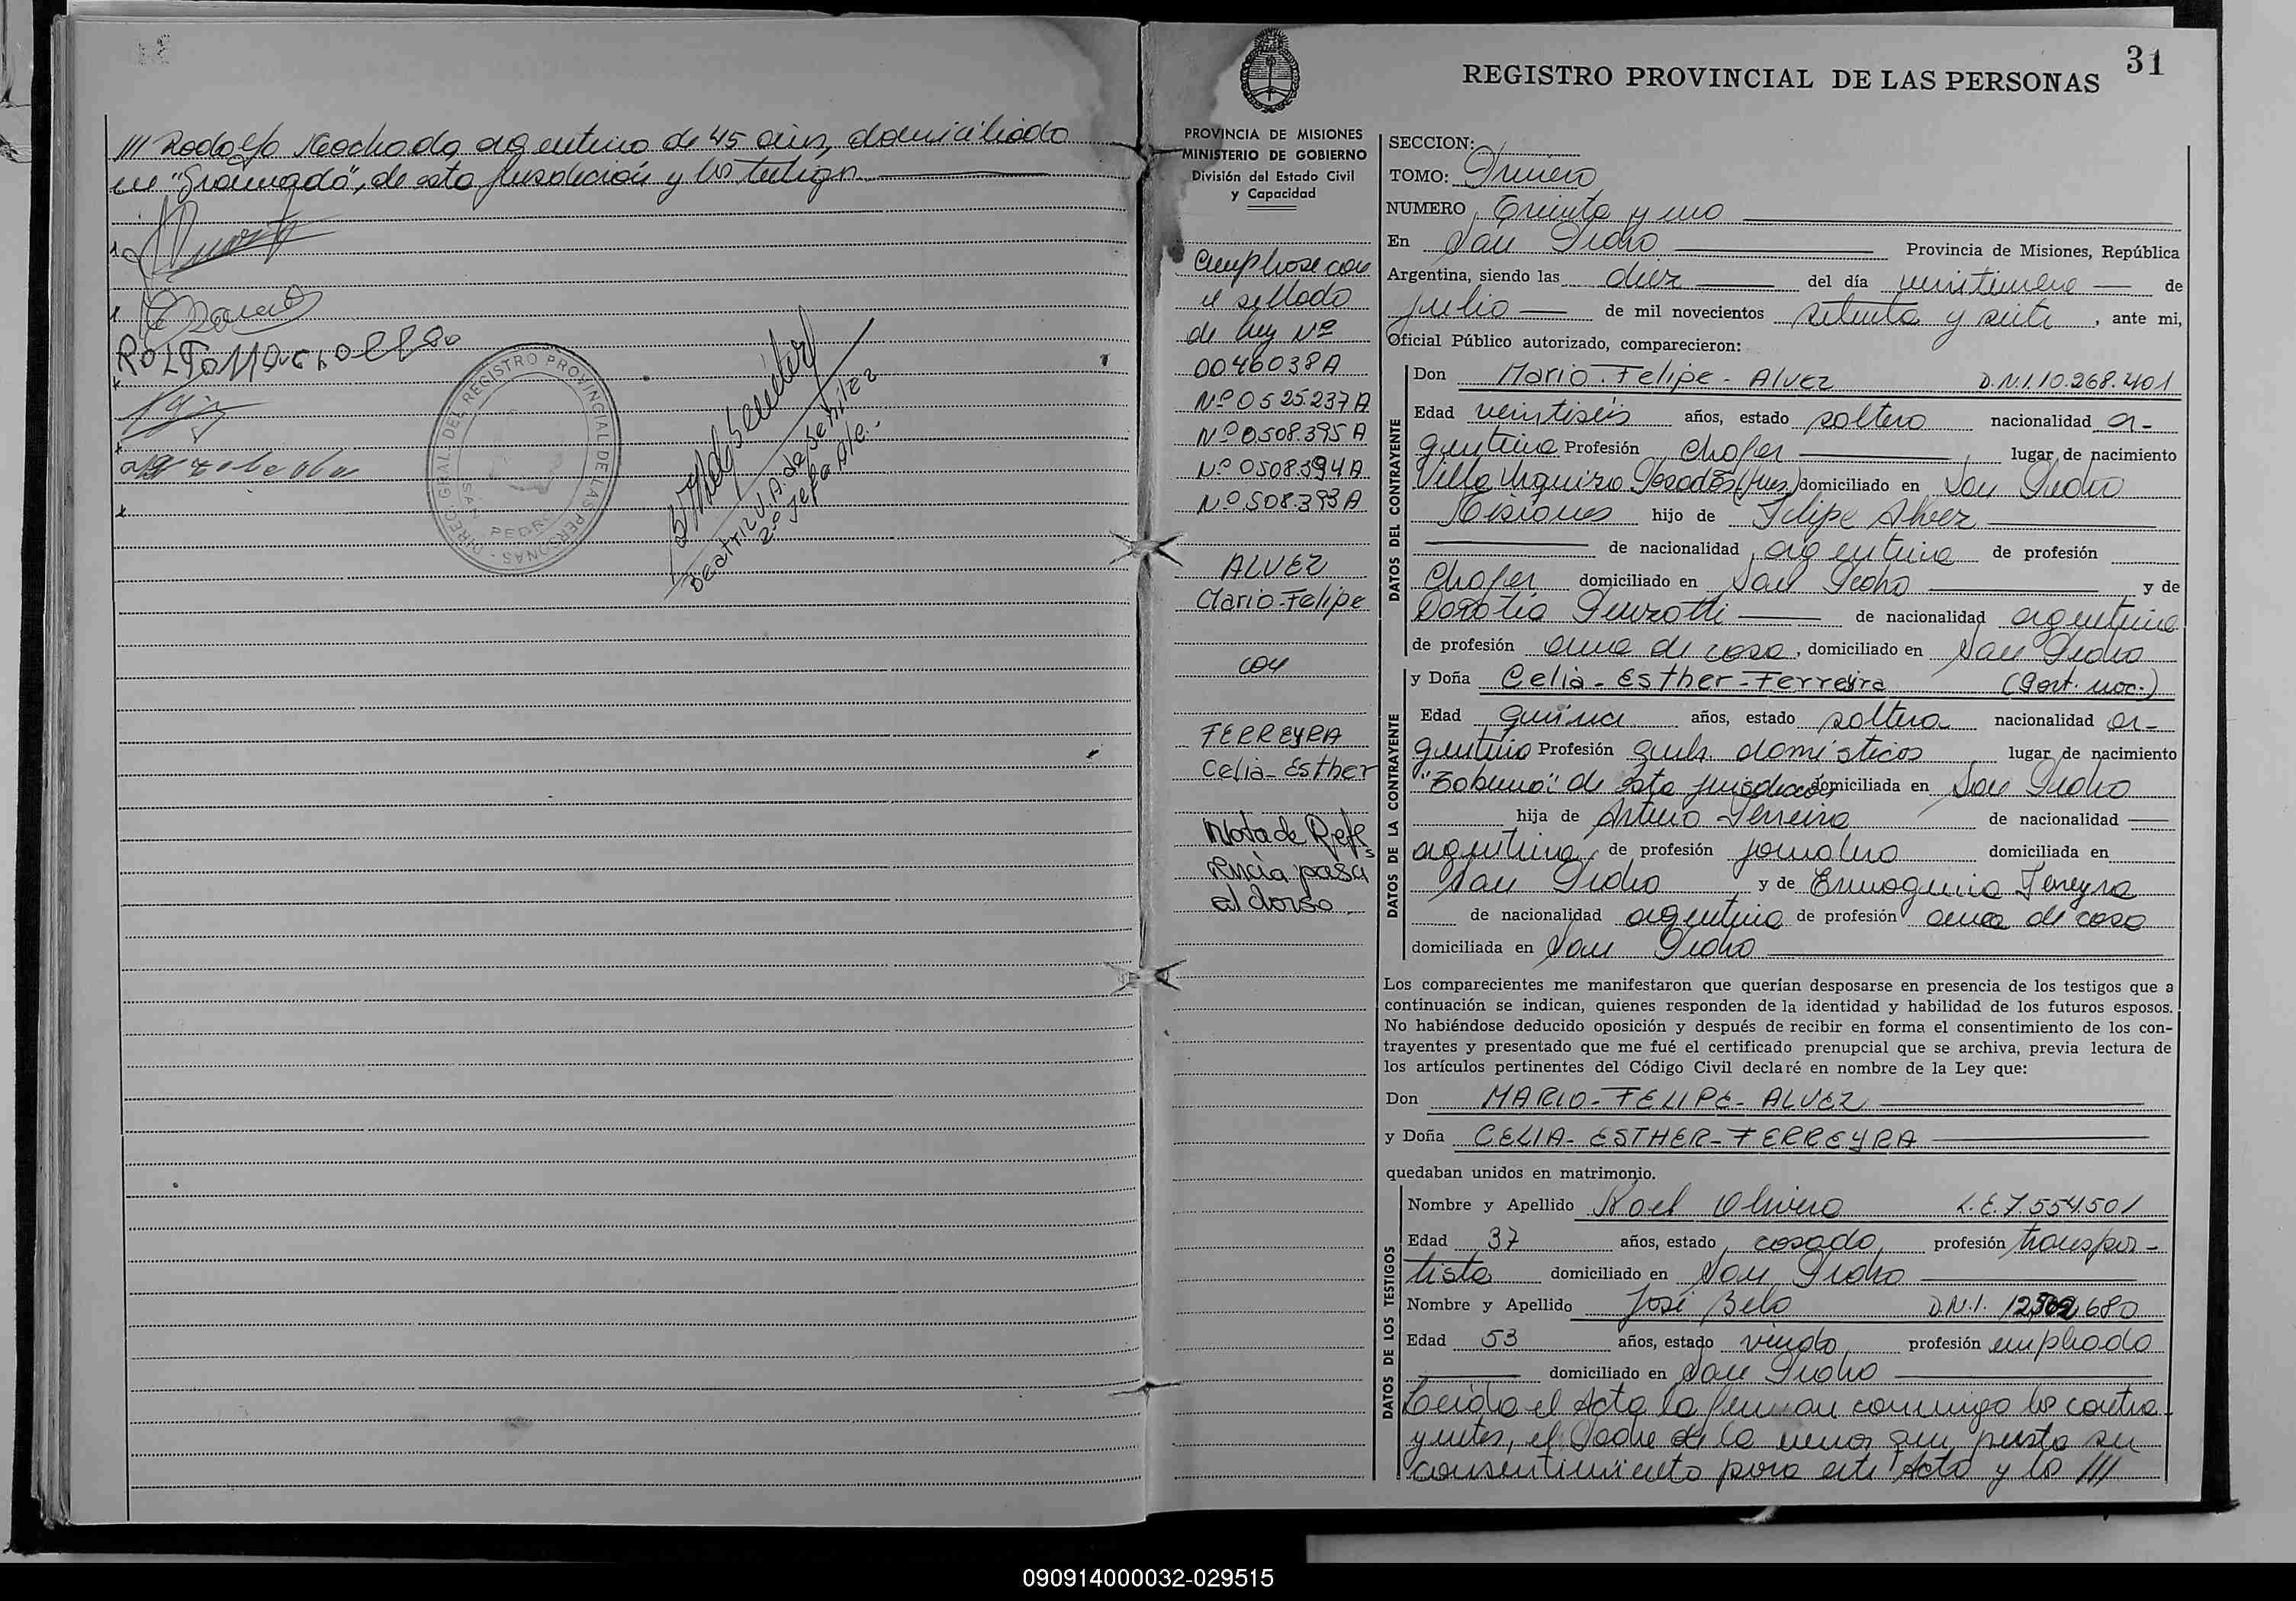 /// Rodolfo Machado argentino de 45 años, domiciliado
en "Gramado", de esta jurisdicción y los testigos
DIREC. GRAL. DEL REGISTRO PROVINCIAL DE LAS PERSONAS
SAN PEDRO
Beatriz V. A. de Benitez
31
REGISTRO PROVINCIAL DE LAS PERSONAS
PROVINCIA DE MISIONES
MINISTERIO DE GOBIERNO
División del Estado Civil
y Capacidad
Cumplrose con
el sellado
de ley Nº
0046038A
Nº 0525.237A
Nº 0508.395A
Nº 0508.394A
Nº 508.393A
ALVEZ
Mario-Felipe
con
FERREYRA
Celia-Esther
Nota de Refe
rencia pasa
al dorso
SECCION:
TOMO: Primero
NUMERO Treinta y uno
En San Pedro Provincia de Misiones, República
Argentina, siendo las diez del día veintinueve de
julio de mil novecientos setenta y siete, ante mi,
Oficial Público autorizado, comparecieron:
DATOS DEL CONTRAYENTE
Don Mario-Felipe-Alvez D.N.I. 10.268.401
Edad veintiséis años, estado soltero nacionalidad ar-
gentina Profesión Chofer lugar de nacimiento
Villa Urquiza Posadas (Mnes.) domiciliado en San Pedro
Misiones hijo de Felipe Alvez
de nacionalidad argentina de profesión
Chofer domiciliado en San Pedro y de
Dorotia de nacionalidad argentina
de profesión ama de casa, domiciliado en San Pedro
DATOS DE LA CONTRAYENTE
y Doña Celia-Esther-Ferreyra (Part. nac.)
Edad quince años, estado soltera nacionalidad ar-
gentina Profesión queh. domésticos lugar de nacimiento
de esta jurisdicción domiciliada en San Pedro
hija de Arturo Ferreira de nacionalidad
argentina de profesión jornalero domiciliada en
San Pedro y de Ermogenia Ferreyra
de nacionalidad argentina de profesión ama de casa
domiciliada en San Pedro
Los comparecientes me manifestaron que querían desposarse en presencia de los testigos que a
continuación se indican, quienes responden de la identidad y habilidad de los futuros esposos.
No habiéndose deducido oposición y después de recibir en forma el consentimiento de los con-
trayentes y presentado que me fué el certificado prenupcial que se archiva, previa lectura de
los artículos pertinentes del Código Civil declaré en nombre de la Ley que:
Don MARIO-FELIPE-ALVEZ
y Doña CELIA-ESTHER-FERREYRA
quedaban unidos en matrimonio.
DATOS DE LOS TESTIGOS
Nombre y Apellido Noel Olivera L.E. 7.554.501
Edad 37 años, estado casado profesión transpor-
tista domiciliado en San Pedro
Nombre y Apellido José Belo D.N.I.
Edad 53 años, estado viudo profesión empleado
domiciliado en San Pedro
Leída el Acta la firman conmigo los contra-
yentes, el Padre de la menor que presta su
consentimiento para este Acto y los ///
090914000032-029515